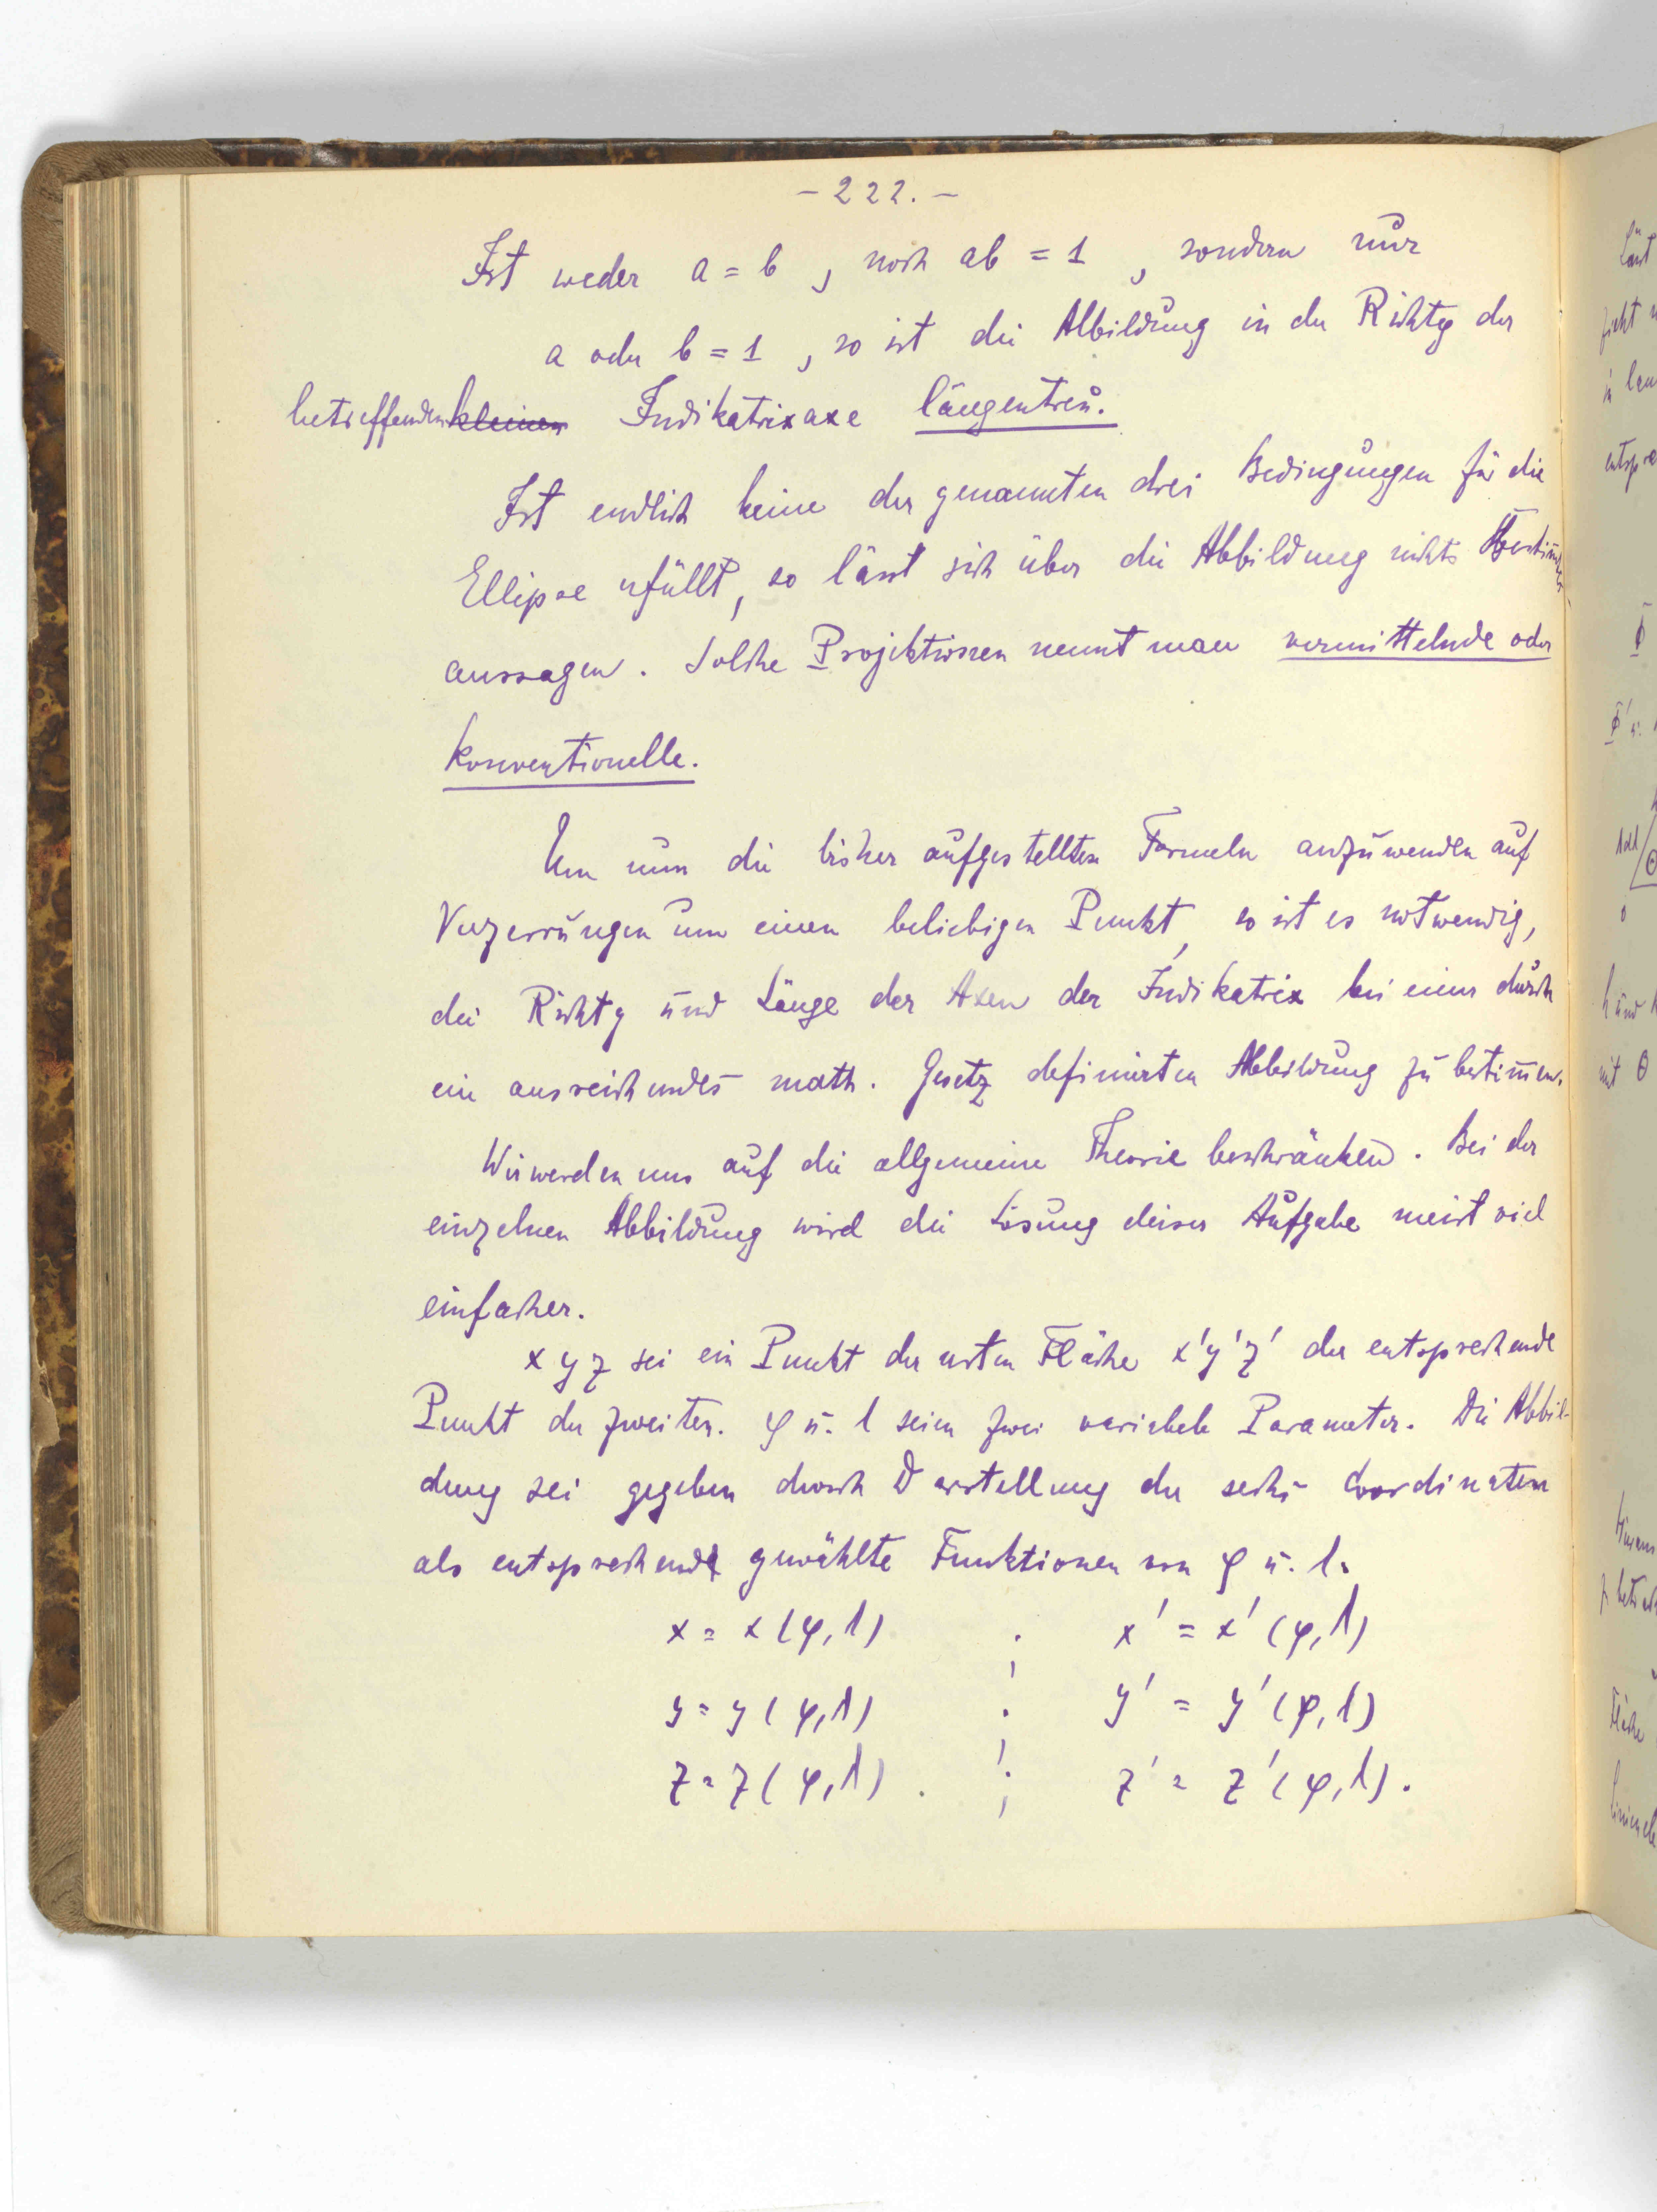 - 222. -
Ist weder a = b, noch ab = 1, sondern nur
a oder b = 1, so ist die Abbildung in der Richtg der
betreffenden kleinen Indikatrixaxe längentreu.
Ist endlich keine der genannten drei Bedingungen für die
Ellipse erfüllt, so lässt sich über die Abbildung nichts Bestimmtes
aussagen. Solche Projektionen nennt man vermittelnde oder
konventionelle.
Um nun die bisher aufgestellten Formeln anzuwenden auf
Verzerrungen um einen beliebigen Punkt, so ist es notwendig,
die Richtg und Länge der Axen der Indikatrix bei einer durch
ein ausreichendes math. Gesetz definirten Abbildung zu bestim̄en.
Wir werden uns auf die allgemeine Theorie beschränken. Bei der
einzelnen Abbildung wird die Lösung dieser Aufgabe meist viel
einfacher.
x y z sei ein Punkt der ersten Fläche x' y' z' der entsprechende
Punkt der zweiten. φ u. l seien zwei variabele Parameter. Die Abbil-
dung sei gegeben durch Darstellung der sechs Coordinaten
als entsprechend gewählte Funktionen von φ u. l.
x = x (φ, l) ; x' = x' (φ, l)
y = y (φ, l) ; y' = y' (φ, l)
z = z (φ, l) . ; z' = z' (φ, l).